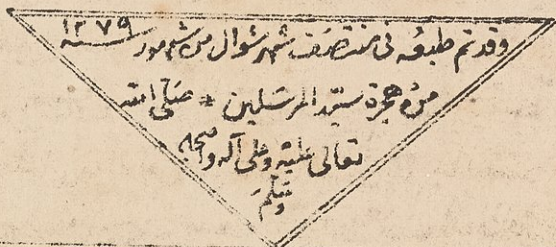 وقد تم طبعه فى منتصف شهر شوال من شهور سنه ١٢٧٩
من هجرة سيد المرسلين * صلى الله
تعالى عليه وعلى آله واصحابه
وسلم